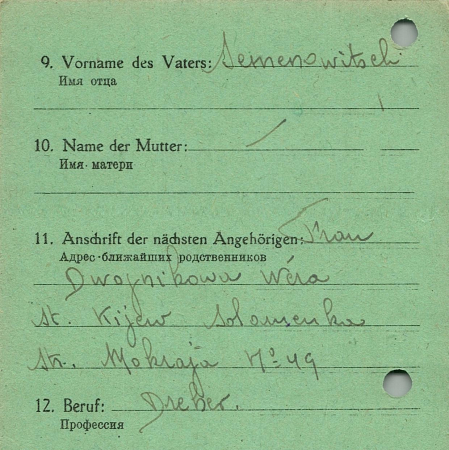 9. Vorname des Vaters: Semenowitsch
Имя отца
10. Name der Mutter: —
Имя матери
11. Anschrift der nächsten Angehörigen: Frau
Адрес ближайших родственников
Dwojnikowa Wéra
st. Kijew Solomenka
str. Mokraja № 49
12. Beruf: Dreher.
Профессия